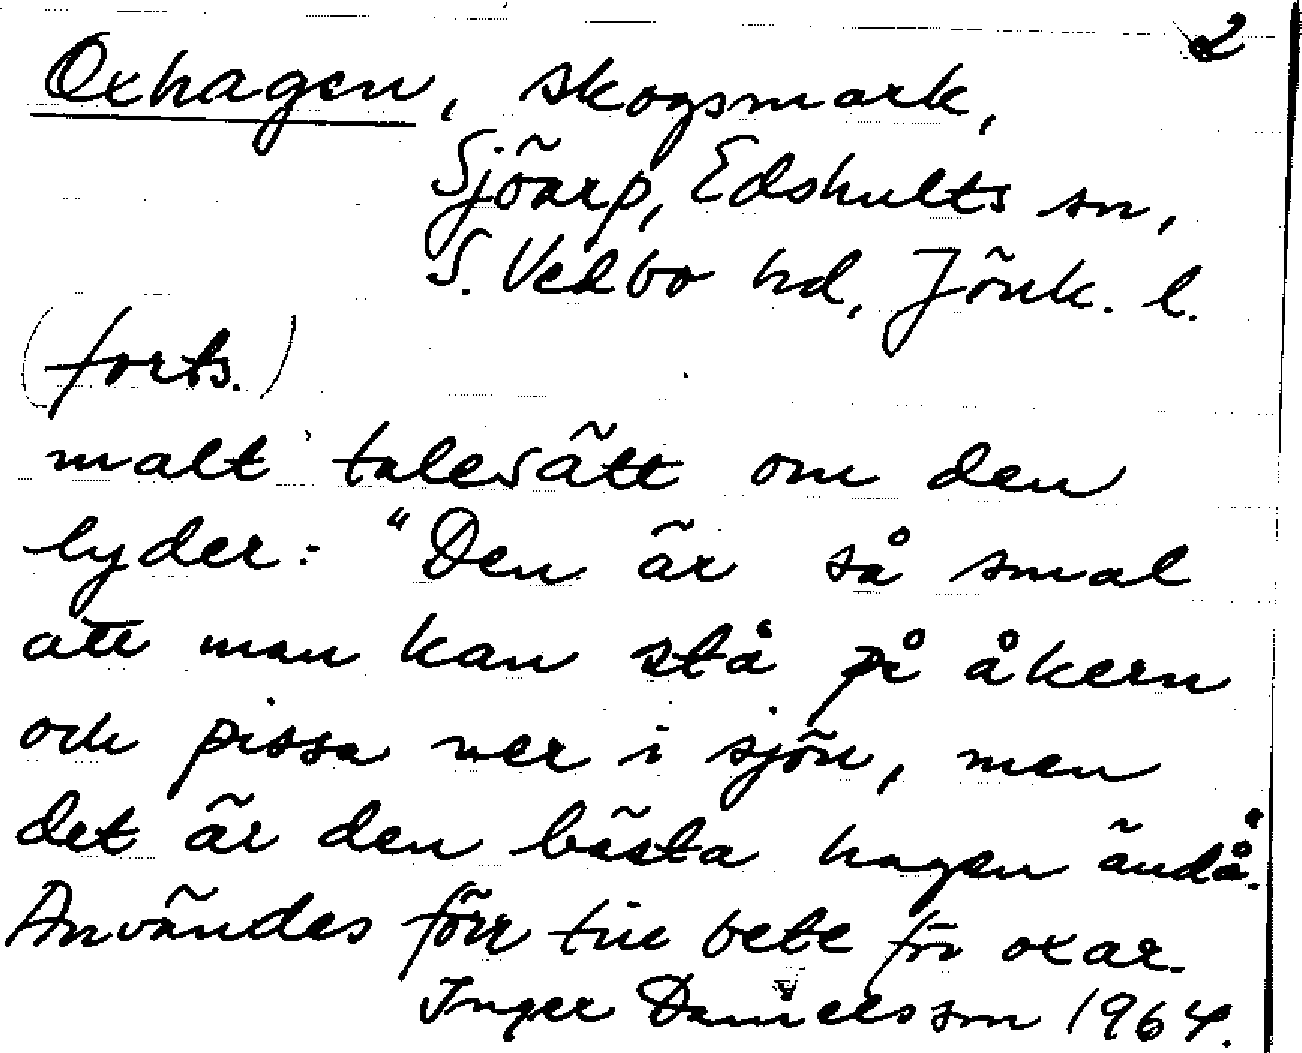 2
Oxhagen, skogsmark,
Sjöarp, Edshults sn,
S. Vedbo hd, Jönk. l.
(forts.)
malt talesätt om den
lyder: "Den är så smal
att man kan stå på åkern
och pissa ner i sjön, men
det är den bästa hagen ändå."
Användes förr till bete för oxar.
Inger Danielsson 1964.